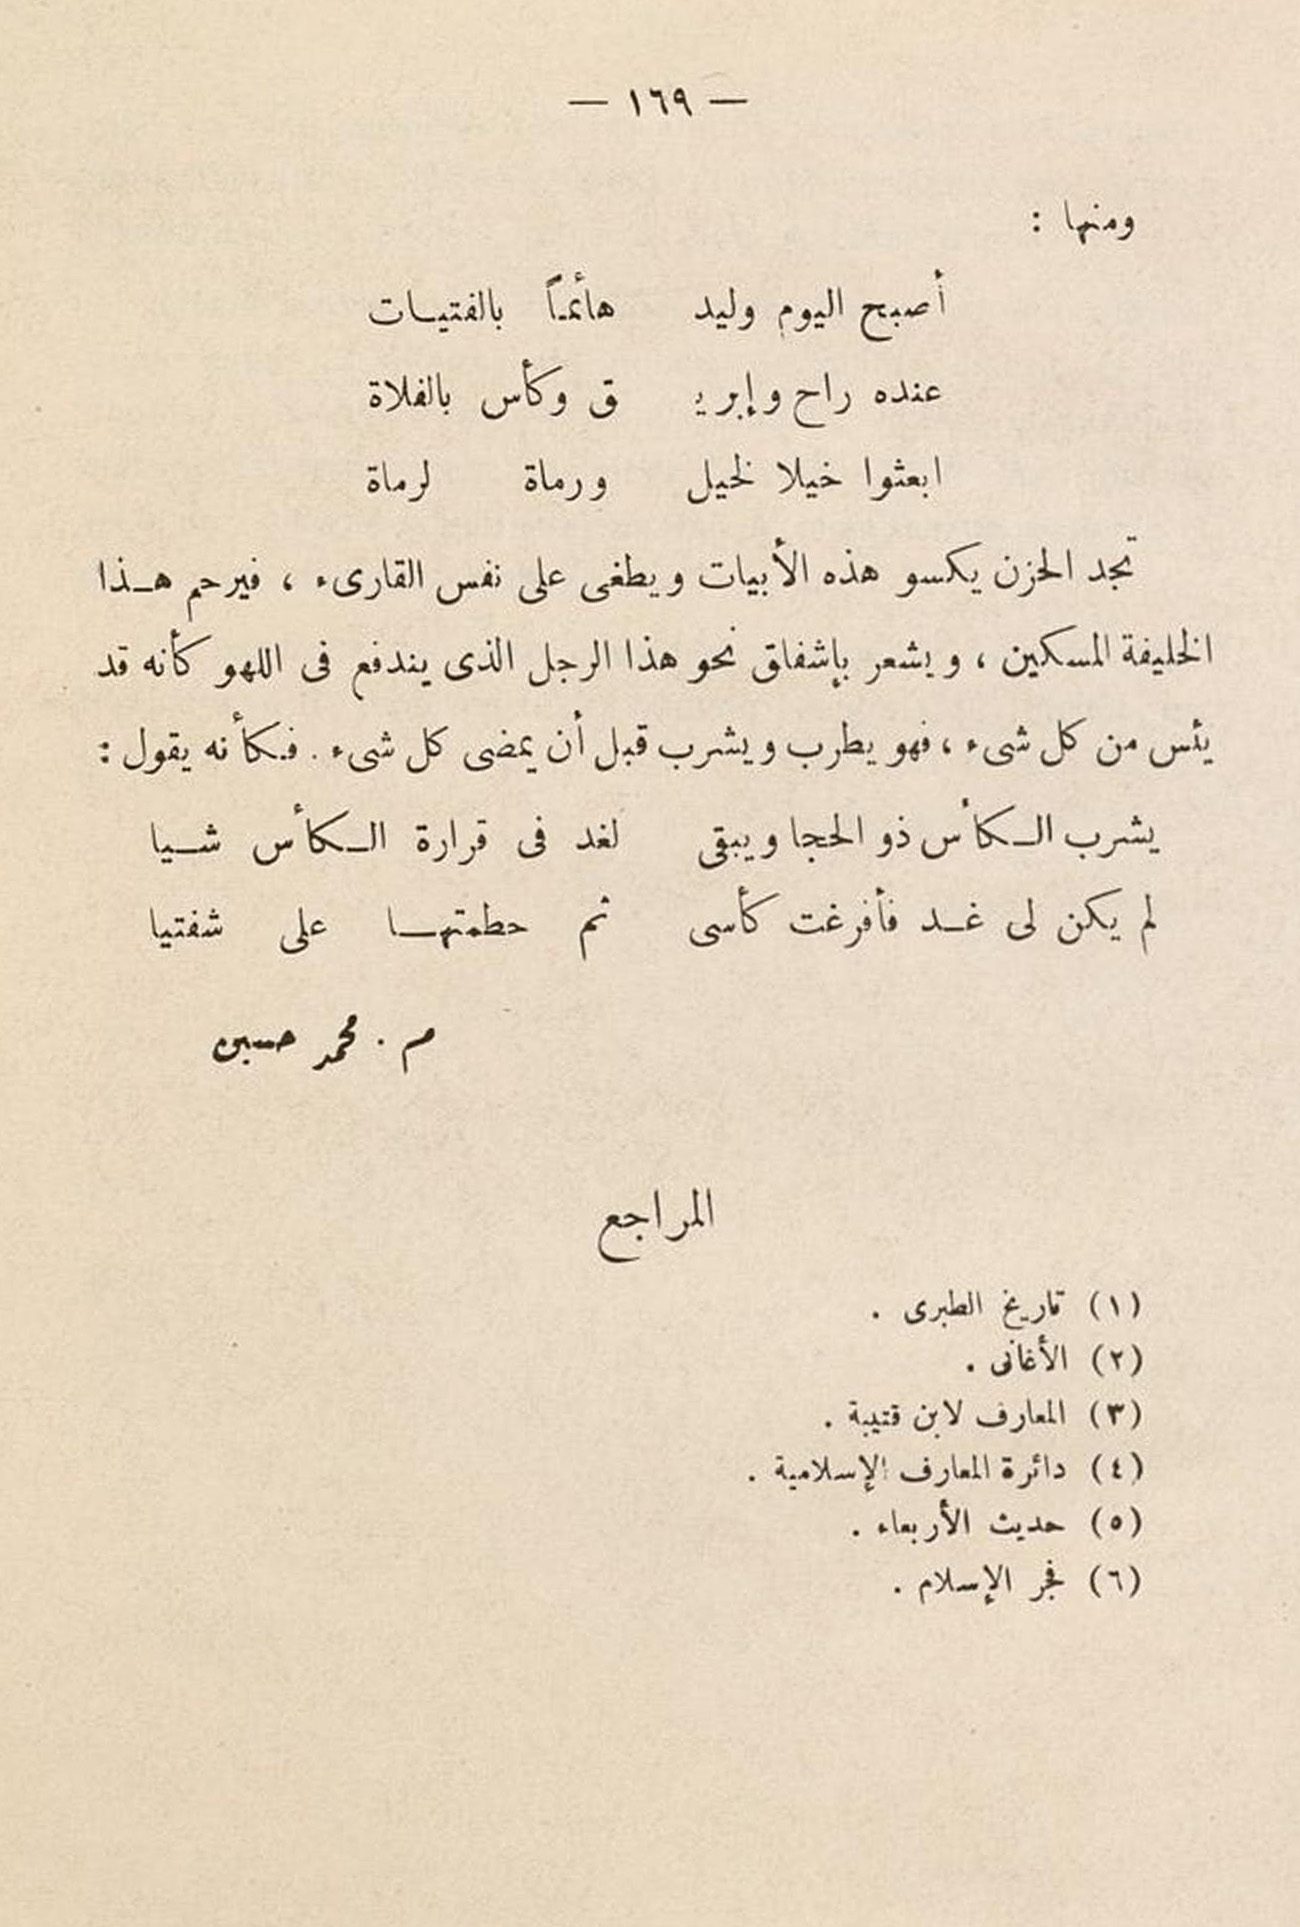 — ١٦٩ —
ومنها :
أصبح اليوم وليد هائماً بالفتيات
عنده راح وإبريـ ق وكأس بالفلاة
ابعثوا خيلا لخيل ورماة لرماة
تجد الحزن يكسو هذه الأبيات ويطغى على نفس القارىء ، فيرحم هذا
الخليفة المسكين ، ويشعر بإشفاق نحو هذا الرجل الذى يندفع فى اللهو كأنه قد
يئس من كل شىء ، فهو يطرب ويشرب قبل أن يمضى كل شىء . فكأنه يقول :
يشرب الكأس ذو الحجا ويبقى لغد فى قرارة الكأس شيا
لم يكن لى غد فأفرغت كأسى ثم حطمتها على شفتيا
م . محمد حسين
المراجع
(١) تاريخ الطبرى .
(٢) الأغانى .
(٣) المعارف لابن قتيبة .
(٤) دائرة المعارف الإسلامية .
(٥) حديث الأربعاء .
(٦) فجر الإسلام .